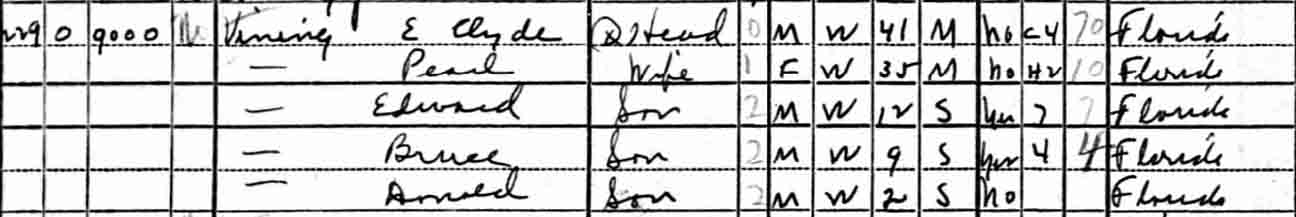 229 0 9000 No Vining E Clyde Head 0 M W 41 M no C4 70 Florida
— Pearl Wife 1 F W 35 M no H2 10 Florida
— Edward Son 2 M W 12 S yes 7 7 Florida
— Bruce Son 2 M W 9 S yes 4 4 Florida
— Arnold Son 2 M W 2 S no Florida